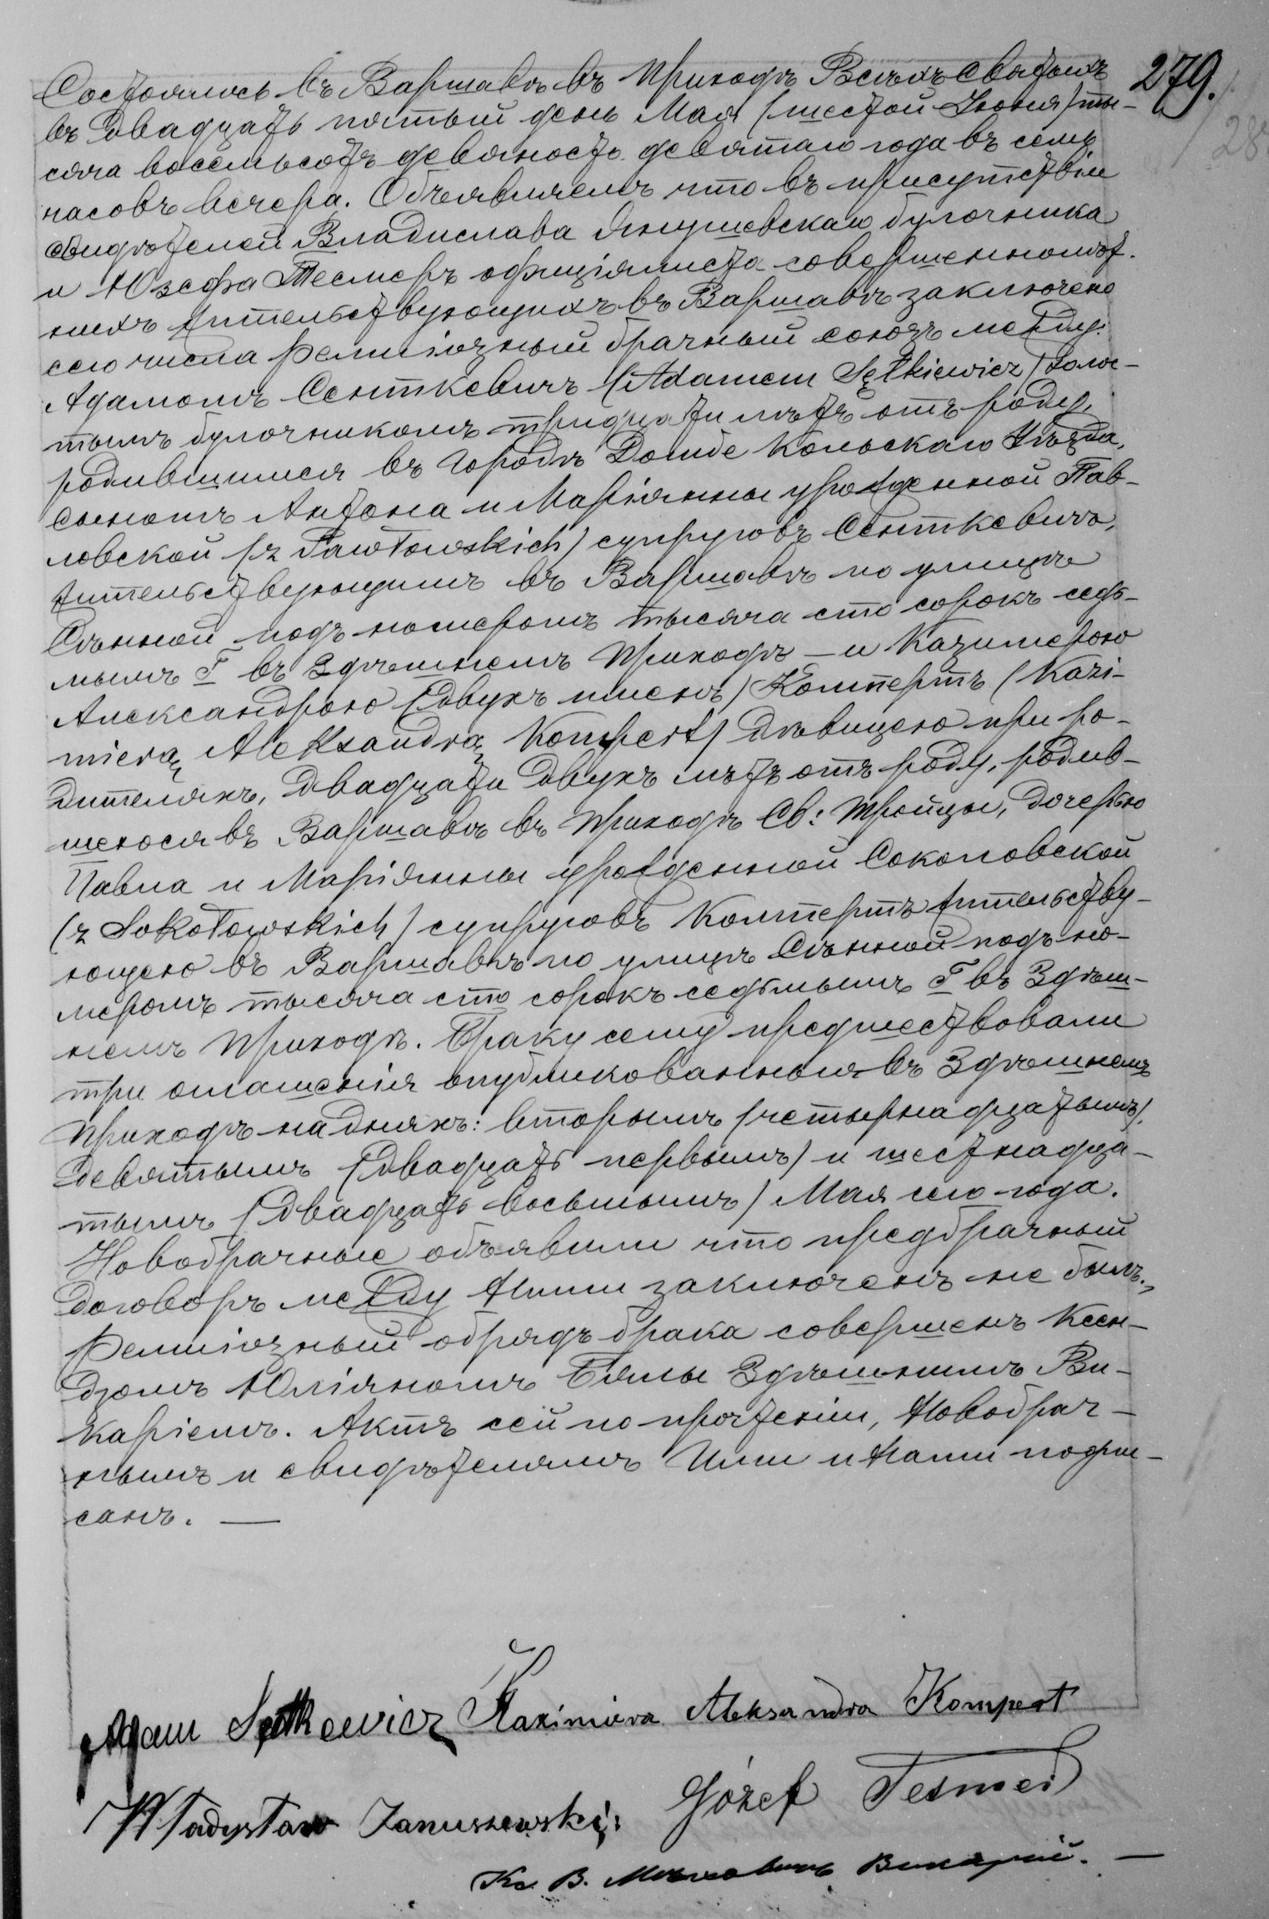 279.
Состоялось въ Варшавѣ въ Приходѣ Всѣхъ Святыхъ
въ Двадцать пятый день Мая (шестой Іюня) ты-
сяча восемьсотъ девяносто девятаго года въ семь
часовъ вечера. Объявляемъ что въ присутствіи
свидѣтелей Владислава Янушевскаго булочника
и Юзефа Тесмеръ офиціялиста совершеннолѣт-
нихъ жительствующихъ въ Варшавѣ заключенъ
сего числа Религіозный брачный союзъ между:
Адамомъ Сенткевичъ (Adamem Sętkiewicz) холос-
тымъ булочникомъ тридцати лѣтъ отъ роду,
родившимся въ городѣ Домбе Кольскаго Уѣзда,
сыномъ Антона и Маріянны урожденной Пав-
ловской (z Pawłowskich) супруговъ Сенткевичъ,
жительствующимъ въ Варшавѣ по улицѣ
Сѣнной подъ номеромъ тысяча сто сорокъ седь-
мымъ Г въ Здѣшнемъ Приходѣ — и Казимерою
Александрою (Двухъ именъ) Компертъ (Kazi-
mierą Aleksandrą Kompert) Дѣвицею при ро-
дителяхъ, Двадцати Двухъ лѣтъ отъ роду, родив-
шеюся въ Варшавѣ въ Приходѣ Св: Тройцы, Дочерью
Павла и Маріянны урожденной Соколовской
(z Sokołowskich) супруговъ Компертъ жительству-
ющею въ Варшавѣ по улицѣ Сѣнной подъ но-
меромъ тысяча сто сорокъ седьмымъ Г въ Здѣш-
немъ Приходѣ. Браку сему предшествовали
три оглашенія опубликованныя въ Здѣшнемъ
Приходѣ на дняхъ: вторымъ (четырнадцатымъ),
Девятымъ (Двадцать первымъ) и шестнадца-
тымъ (Двадцать восьмымъ) Мая сего года.
Новобрачные объявили что предбрачный
Договоръ между Ними заключенъ не былъ.
Религіозный обрядъ брака совершенъ Ксен-
дзомъ Юліяномъ Бялы Здѣшнимъ Ви-
каріемъ. Актъ сей по прочтеніи, Новобрач-
нымъ и свидѣтелямъ Ими и Нами подпи-
санъ. —
Adam Sętkiewicz Kazimiera Aleksandra Kompert
Władysław Januszewski Józef Tesmer
Кс. В. Викарій. —